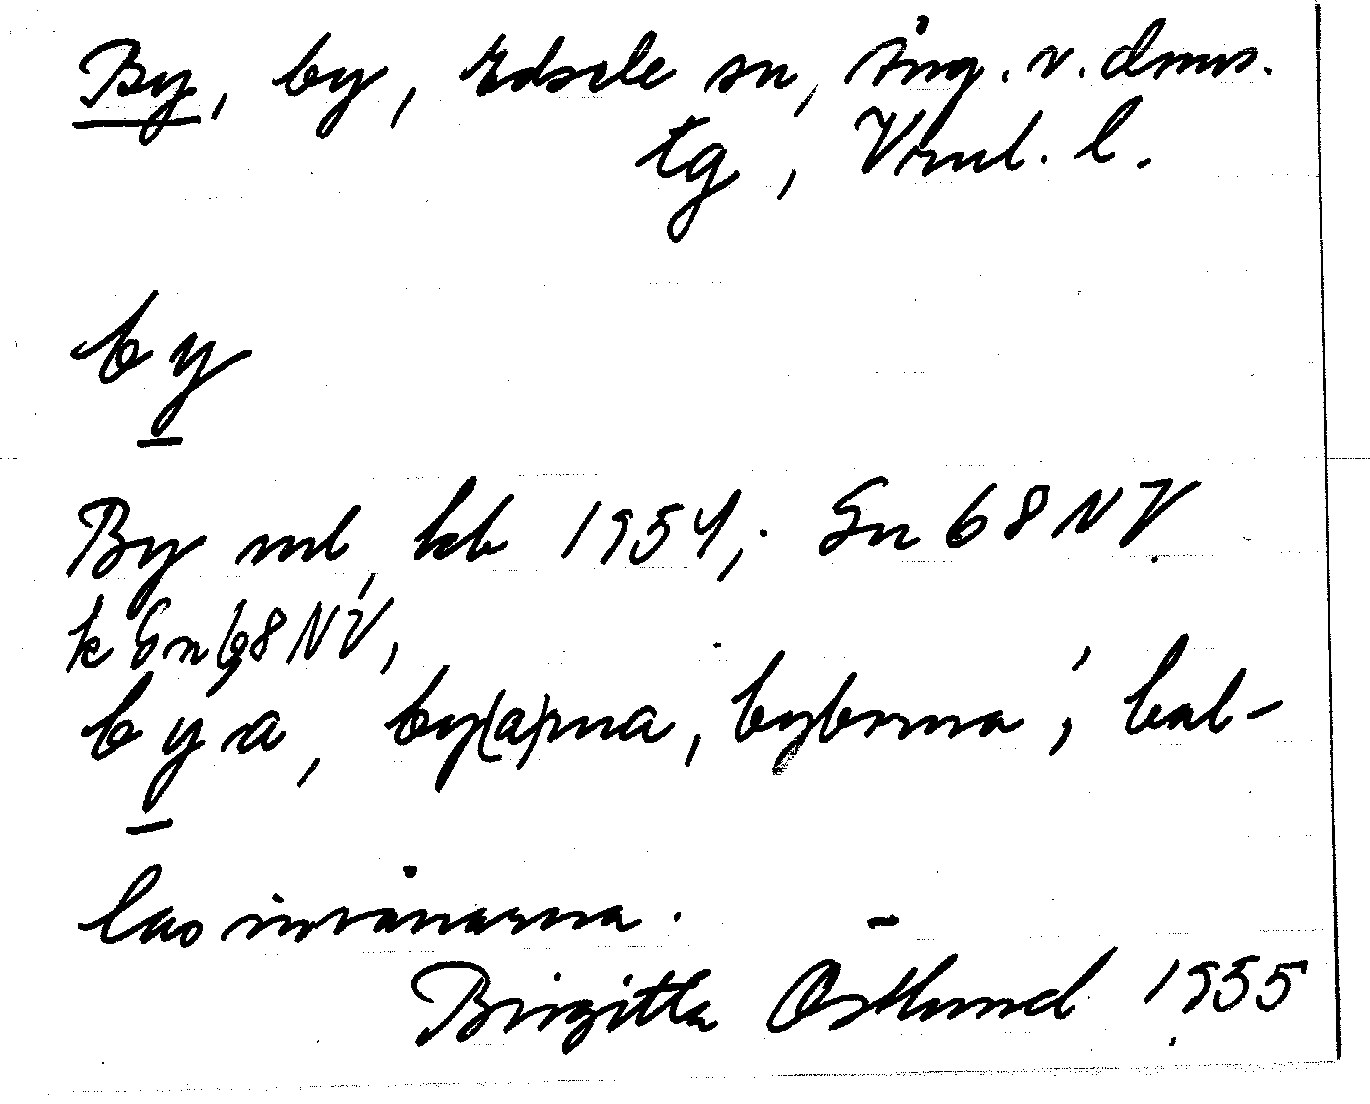 By, by, Edsele sn, Ång. v. dmns.
tg, Vrnl. l.
by
By ml, kb 1954; Sn 68 NV
k Sn 68 NV,
bya, by(a)rna, byborna; kal-
las invånarna. -
Birgitta Östlund 1955